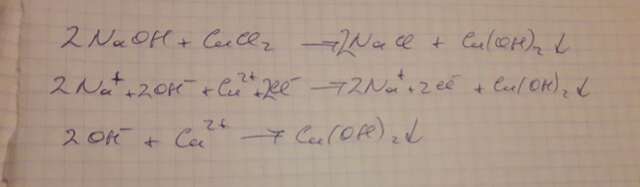 2NaOH + CuCl₂ → 2NaCl + Cu(OH)₂↓
2Na⁺ + 2OH⁻ + Cu²⁺ + 2Cl⁻ → 2Na⁺ + 2Cl⁻ + Cu(OH)₂↓
2OH⁻ + Cu²⁺ → Cu(OH)₂↓